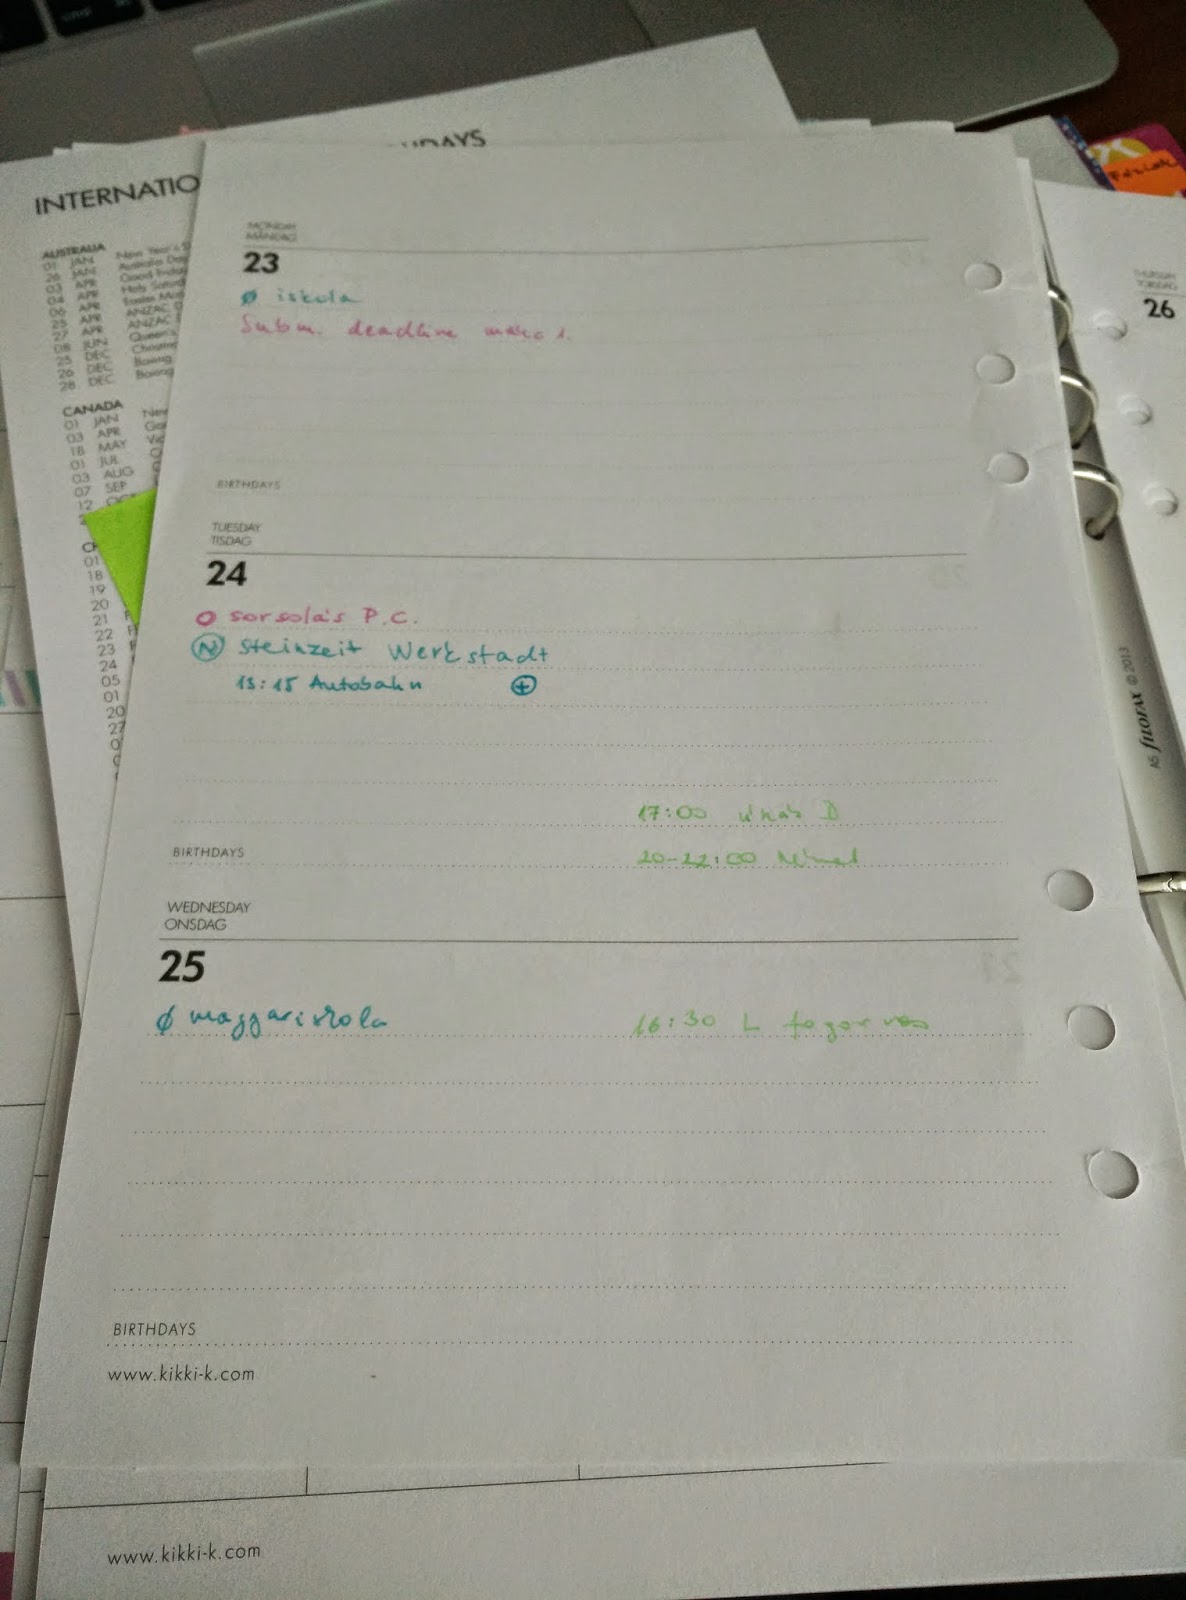 INTERNATIO
AUSTRALIA
01 JAN New Year's
26 JAN Australia Day
03 APR Good Friday
04 APR Holy Saturd
06 APR Easter Mon
25 APR ANZAC
27 APR ANZAC
08 JUN Queen's
25 DEC Christm
26 DEC Boxing
28 DEC Boxing
CANADA
01 JAN New
03 APR Goo
18 MAY Vic
01 JUL
03 AUG
07 SEP
12 OCT
01
18
19
20
21
22
23
24
05
01
20
27
MONDAY
MÅNDAG
23
Ø iskola
Subm. deadline
BIRTHDAYS
TUESDAY
TISDAG
24
O sorsolás P.C.
N Steinzeit Werkstadt
15:15 Autobahn +
17:00
20-22:00
BIRTHDAYS
WEDNESDAY
ONSDAG
25
Ø magyariskola 16:30 L fogorvos
BIRTHDAYS
www.kikki-k.com
www.kikki-k.com
THURSDAY
TORSDAG
26
A5 FILOFAX © 2013